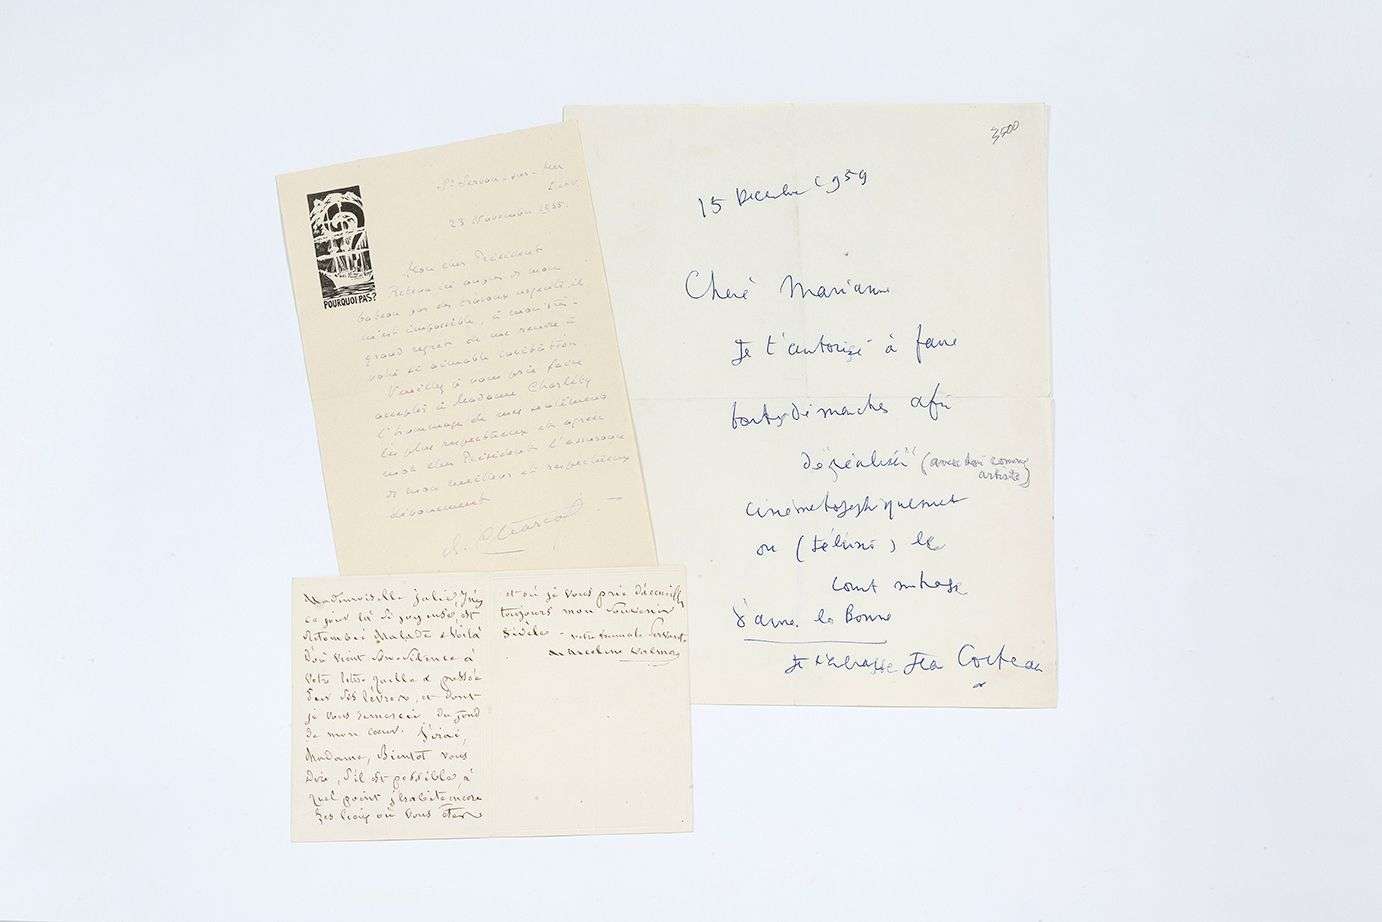 St Servan-sur-Mer
23 Novembre 1935.
POURQUOI PAS?
Mon cher Président
Retenu en
bateau par des travaux urgents il
m'est impossible, à mon très-
grand regret de me rendre à
votre si aimable invitation.
Veuillez je vous prie faire
accepter à Madame Charliey
l'hommage de mes sentiments
les plus respectueux et agréer
mon cher Président l'assurance
de mon meilleur et respectueux
dévouement
Charcot
3500
15 Décembre 1959
Cheré Marianne
Je t'autorise à faire
toutes démarches afin
de réaliser (avec toi comme
artiste)
cinématographiquement
ou (télévisé) le
court métrage
d'Anna la Bonne
Je t'embrasse Jean Cocteau
Mademoiselle julie,
ce jour là si joyeuse, est
retombée Malade. Voilà
d'où vient son silence à
votre lettre qu'elle a pressée
sur ses lèvres, et dont
je vous remercie du fond
de mon cœur. J'irai,
Madame, Bientôt vous
Dire, s'il est possible à
quel point j'habite encore
les lieux où vous êtes
et où je vous prie d'accueillir
toujours mon souvenir
fidèle - votre humble servante
Marceline Valmore